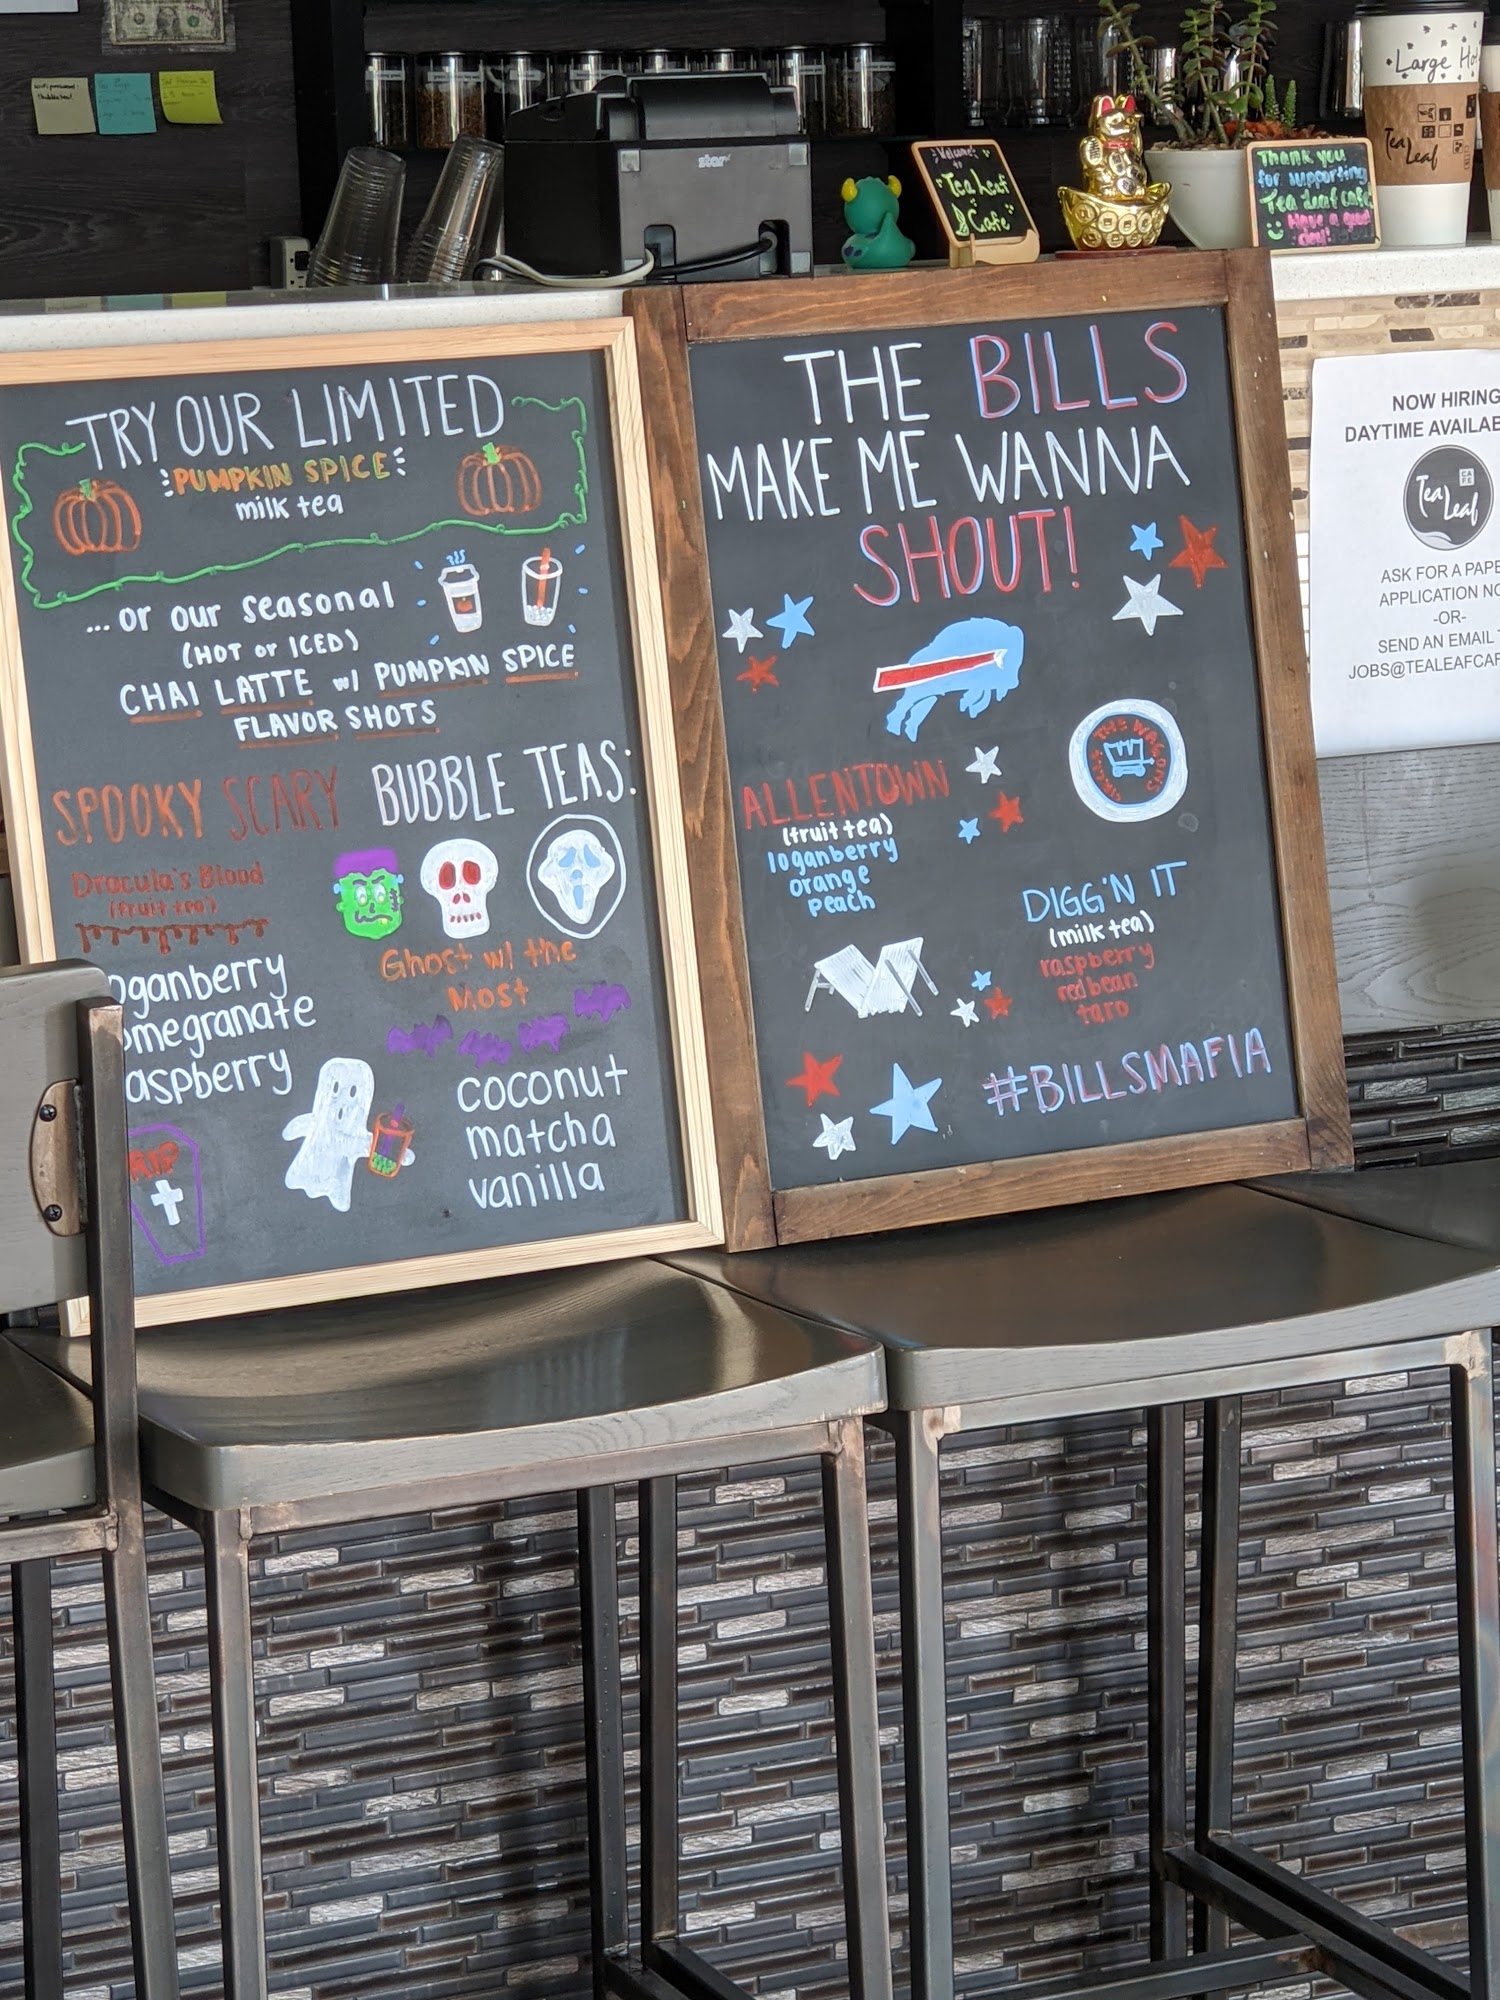 star
Welcome!
to
Tea Leaf
Cafe
Thank you
for supporting
Tea Leaf cafe
Have a good
day!
Large Hot
Tea
Leaf
TRY OUR LIMITED
PUMPKIN SPICE
milk tea
...or our seasonal
(HOT or ICED)
CHAI LATTE w/ PUMPKIN SPICE
FLAVOR SHOTS
SPOOKY SCARY BUBBLE TEAS:
Dracula's Blood
(fruit tea)
oganberry
omegranate
aspberry
RIP
Ghost w/ the
Most
coconut
matcha
vanilla
THE BILLS
MAKE ME WANNA
SHOUT!
CIRCLE THE WAGONS
ALLENTOWN
(fruit tea)
loganberry
orange
peach
DIGG'N IT
(milk tea)
raspberry
red bean
taro
#BILLSMAFIA
NOW HIRING
DAYTIME AVAILAB
Tea
Leaf
CAFE
ASK FOR A PAPE
APPLICATION NO
-OR-
SEND AN EMAIL
JOBS@TEALEAFCAF